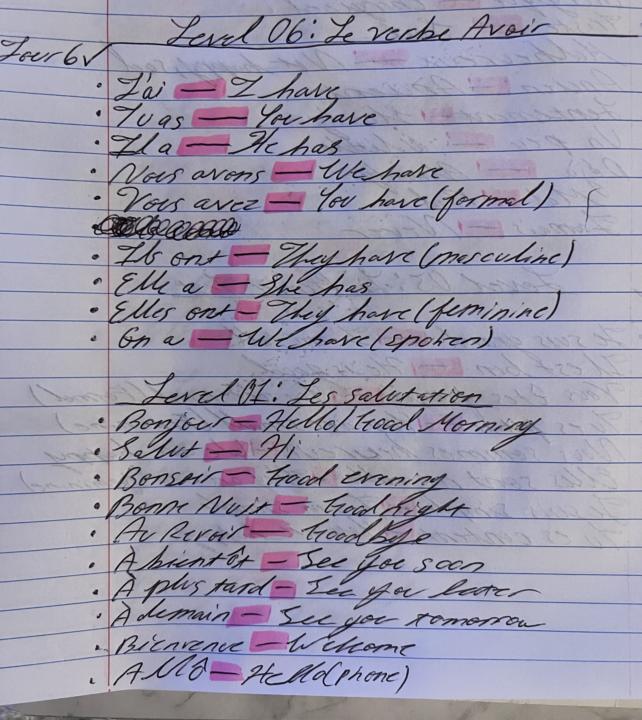 Level 06: Le verbe Avoir
Jour 6 ✓
• J'ai — I have
• Tu as — You have
• Il a — He has
• Nous avons — We have
• Vous avez — You have (formal)
• Ils ont — They have (masculine)
• Elle a — She has
• Elles ont — They have (feminine)
• On a — We have (spoken)
Level 01: Les salutation
• Bonjour — Hello/Good Morning
• Salut — Hi
• Bonsoir — Good evening
• Bonne Nuit — Goodnight
• Au Revoir — Goodbye
• À bientôt — See you soon
• À plus tard — See you later
• À demain — See you tomorrow
• Bienvenue — Welcome
• Allô — Hello (phone)